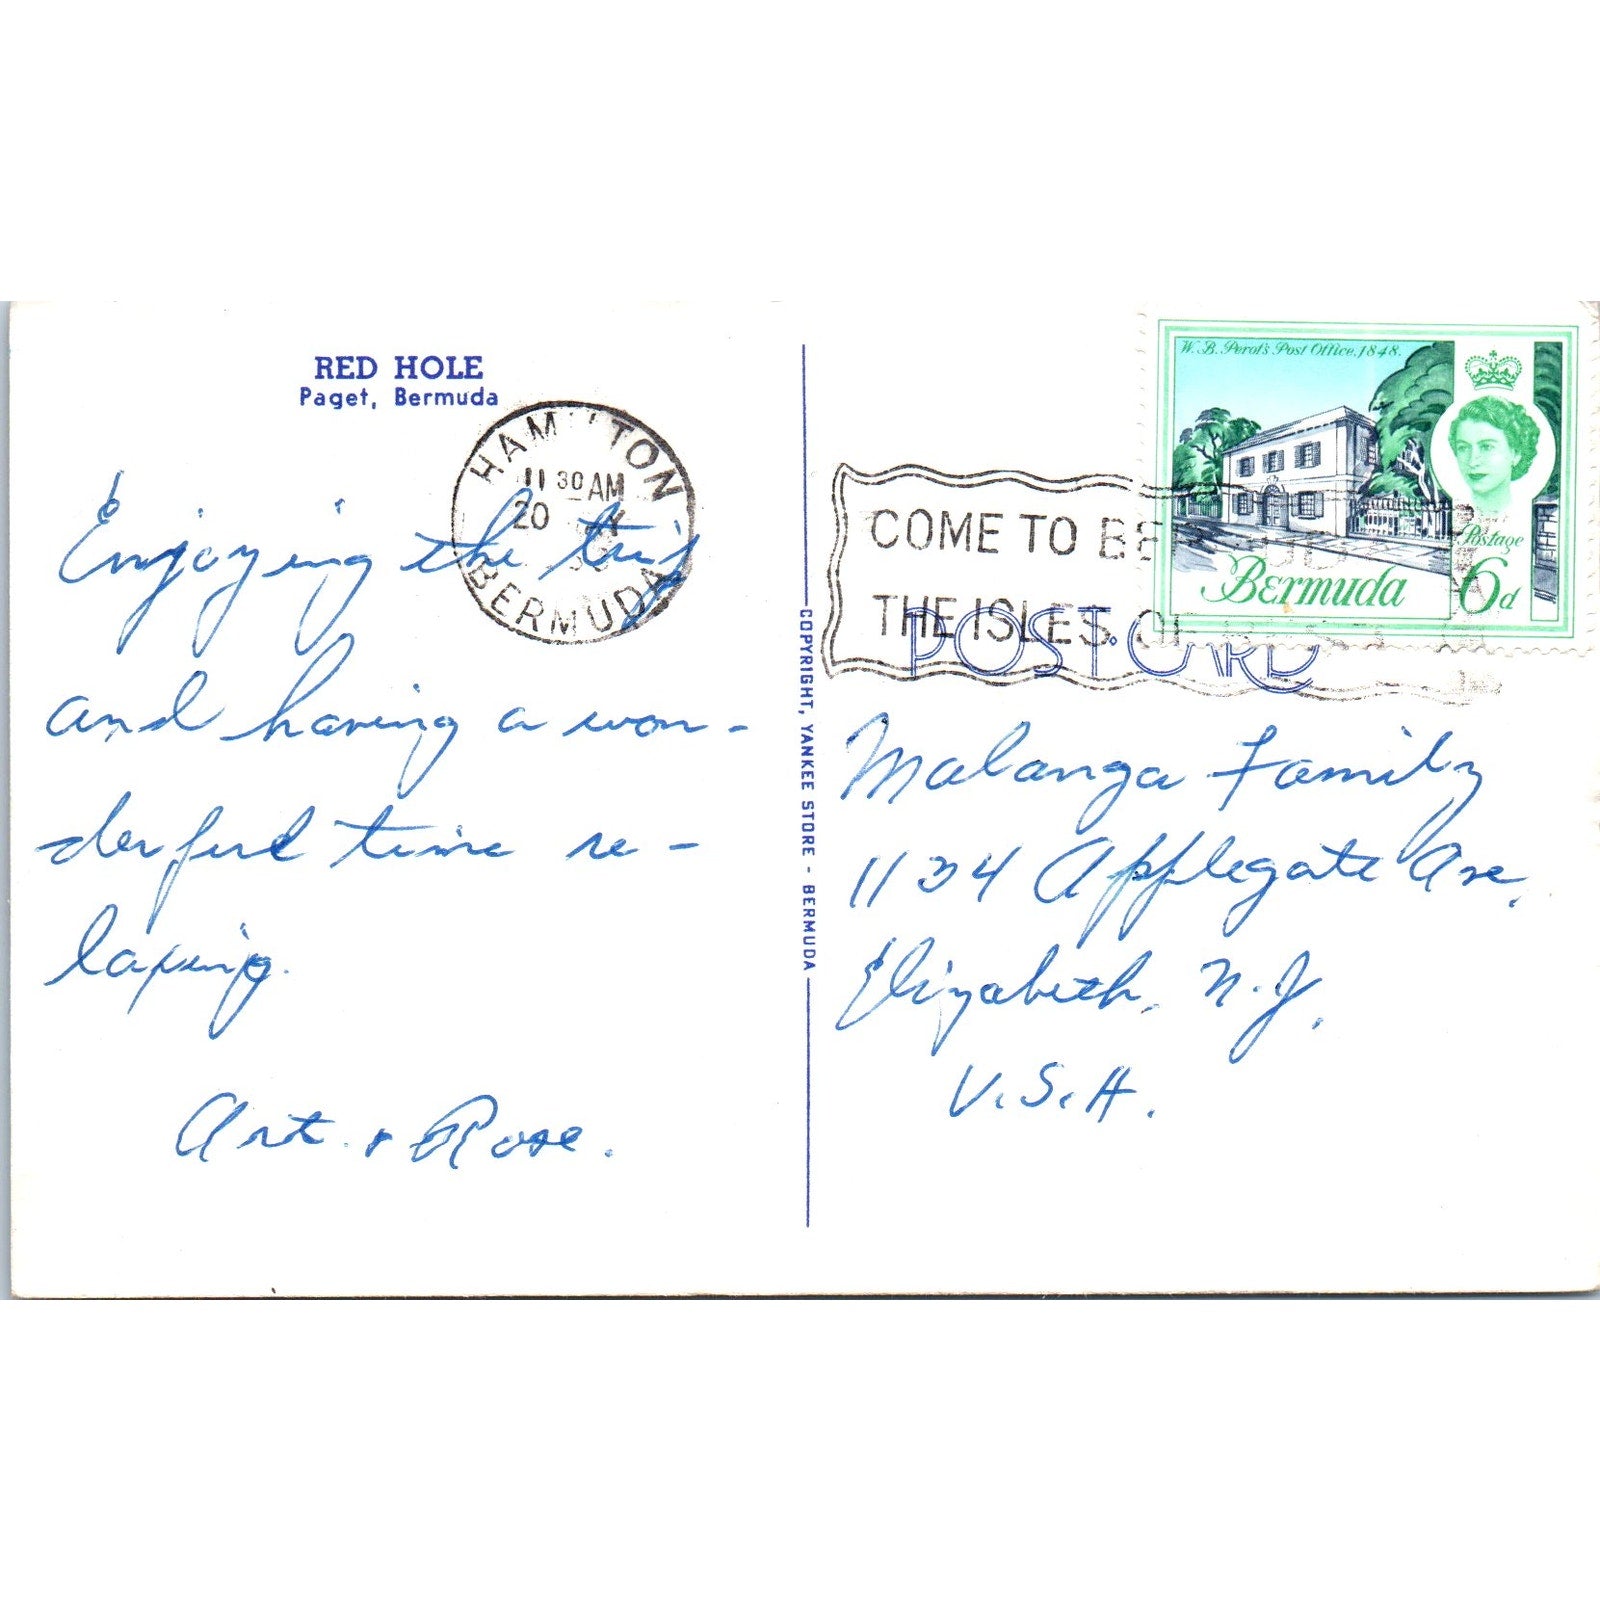 RED HOLE
Paget, Bermuda
HAMILTON
11 30 AM
20
BERMUDA
Enjoying the trip
and having a won-
derful time re-
laxing.
Art. & Rose.
COPYRIGHT, YANKEE STORE - BERMUDA
W. B. Perot's Post Office, 1848.
Postage
Bermuda 6d
COME TO BERMUDA
THE ISLES OF REST
POST CARD
Malanga Family
1134 Applegate Ave.
Elizabeth, N.J.
U.S.A.